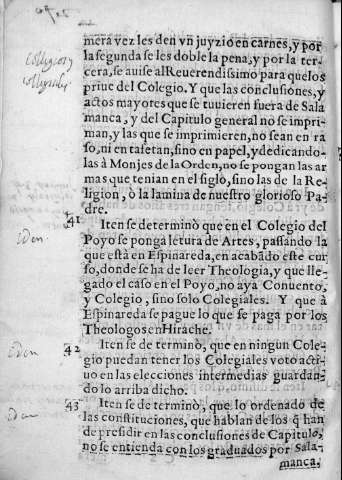 mera vez les den vn juyzio en carnes, y por
la segunda se les doble la pena, y por la ter-
cera, se auise al Reuerendissimo para que los
priue del Colegio. Y que las conclusiones, y
actos mayores que se tuuieren fuera de Sala
manca, y del Capitulo general no se impri-
man, y las que se imprimieren, no sean en ra
so, ni en tafetan, sino en papel, y dedicando-
las à Monjes de la Orden, no se pongan las ar
mas que tenian en el siglo, sino las de la Re-
ligion, ò la lamina de nuestro glorioso Pa-
dre.
41 Iten se determinò que en el Colegio del
Poyo se ponga letura de Artes, passando la
que està en Espinareda, en acabãdo este cur
so, donde se ha de leer Theologia, y que lle-
gado el caso en el Poyo, no aya Conuento,
y Colegio, sino solo Colegiales. Y que à
Espinareda se pague lo que se paga por los
Theologos en Hirache.
42 Iten se de terminò, que en ningun Cole-
gio puedan tener los Colegiales voto acti-
uo en las elecciones intermedias guardan-
do lo arriba dicho.
43 Iten se determinò, que lo ordenado de
las constituciones, que hablan de los q̃ han
de presidir en las conclusiones de Capitulo,
no se entienda con los graduados por Sala-
manca,